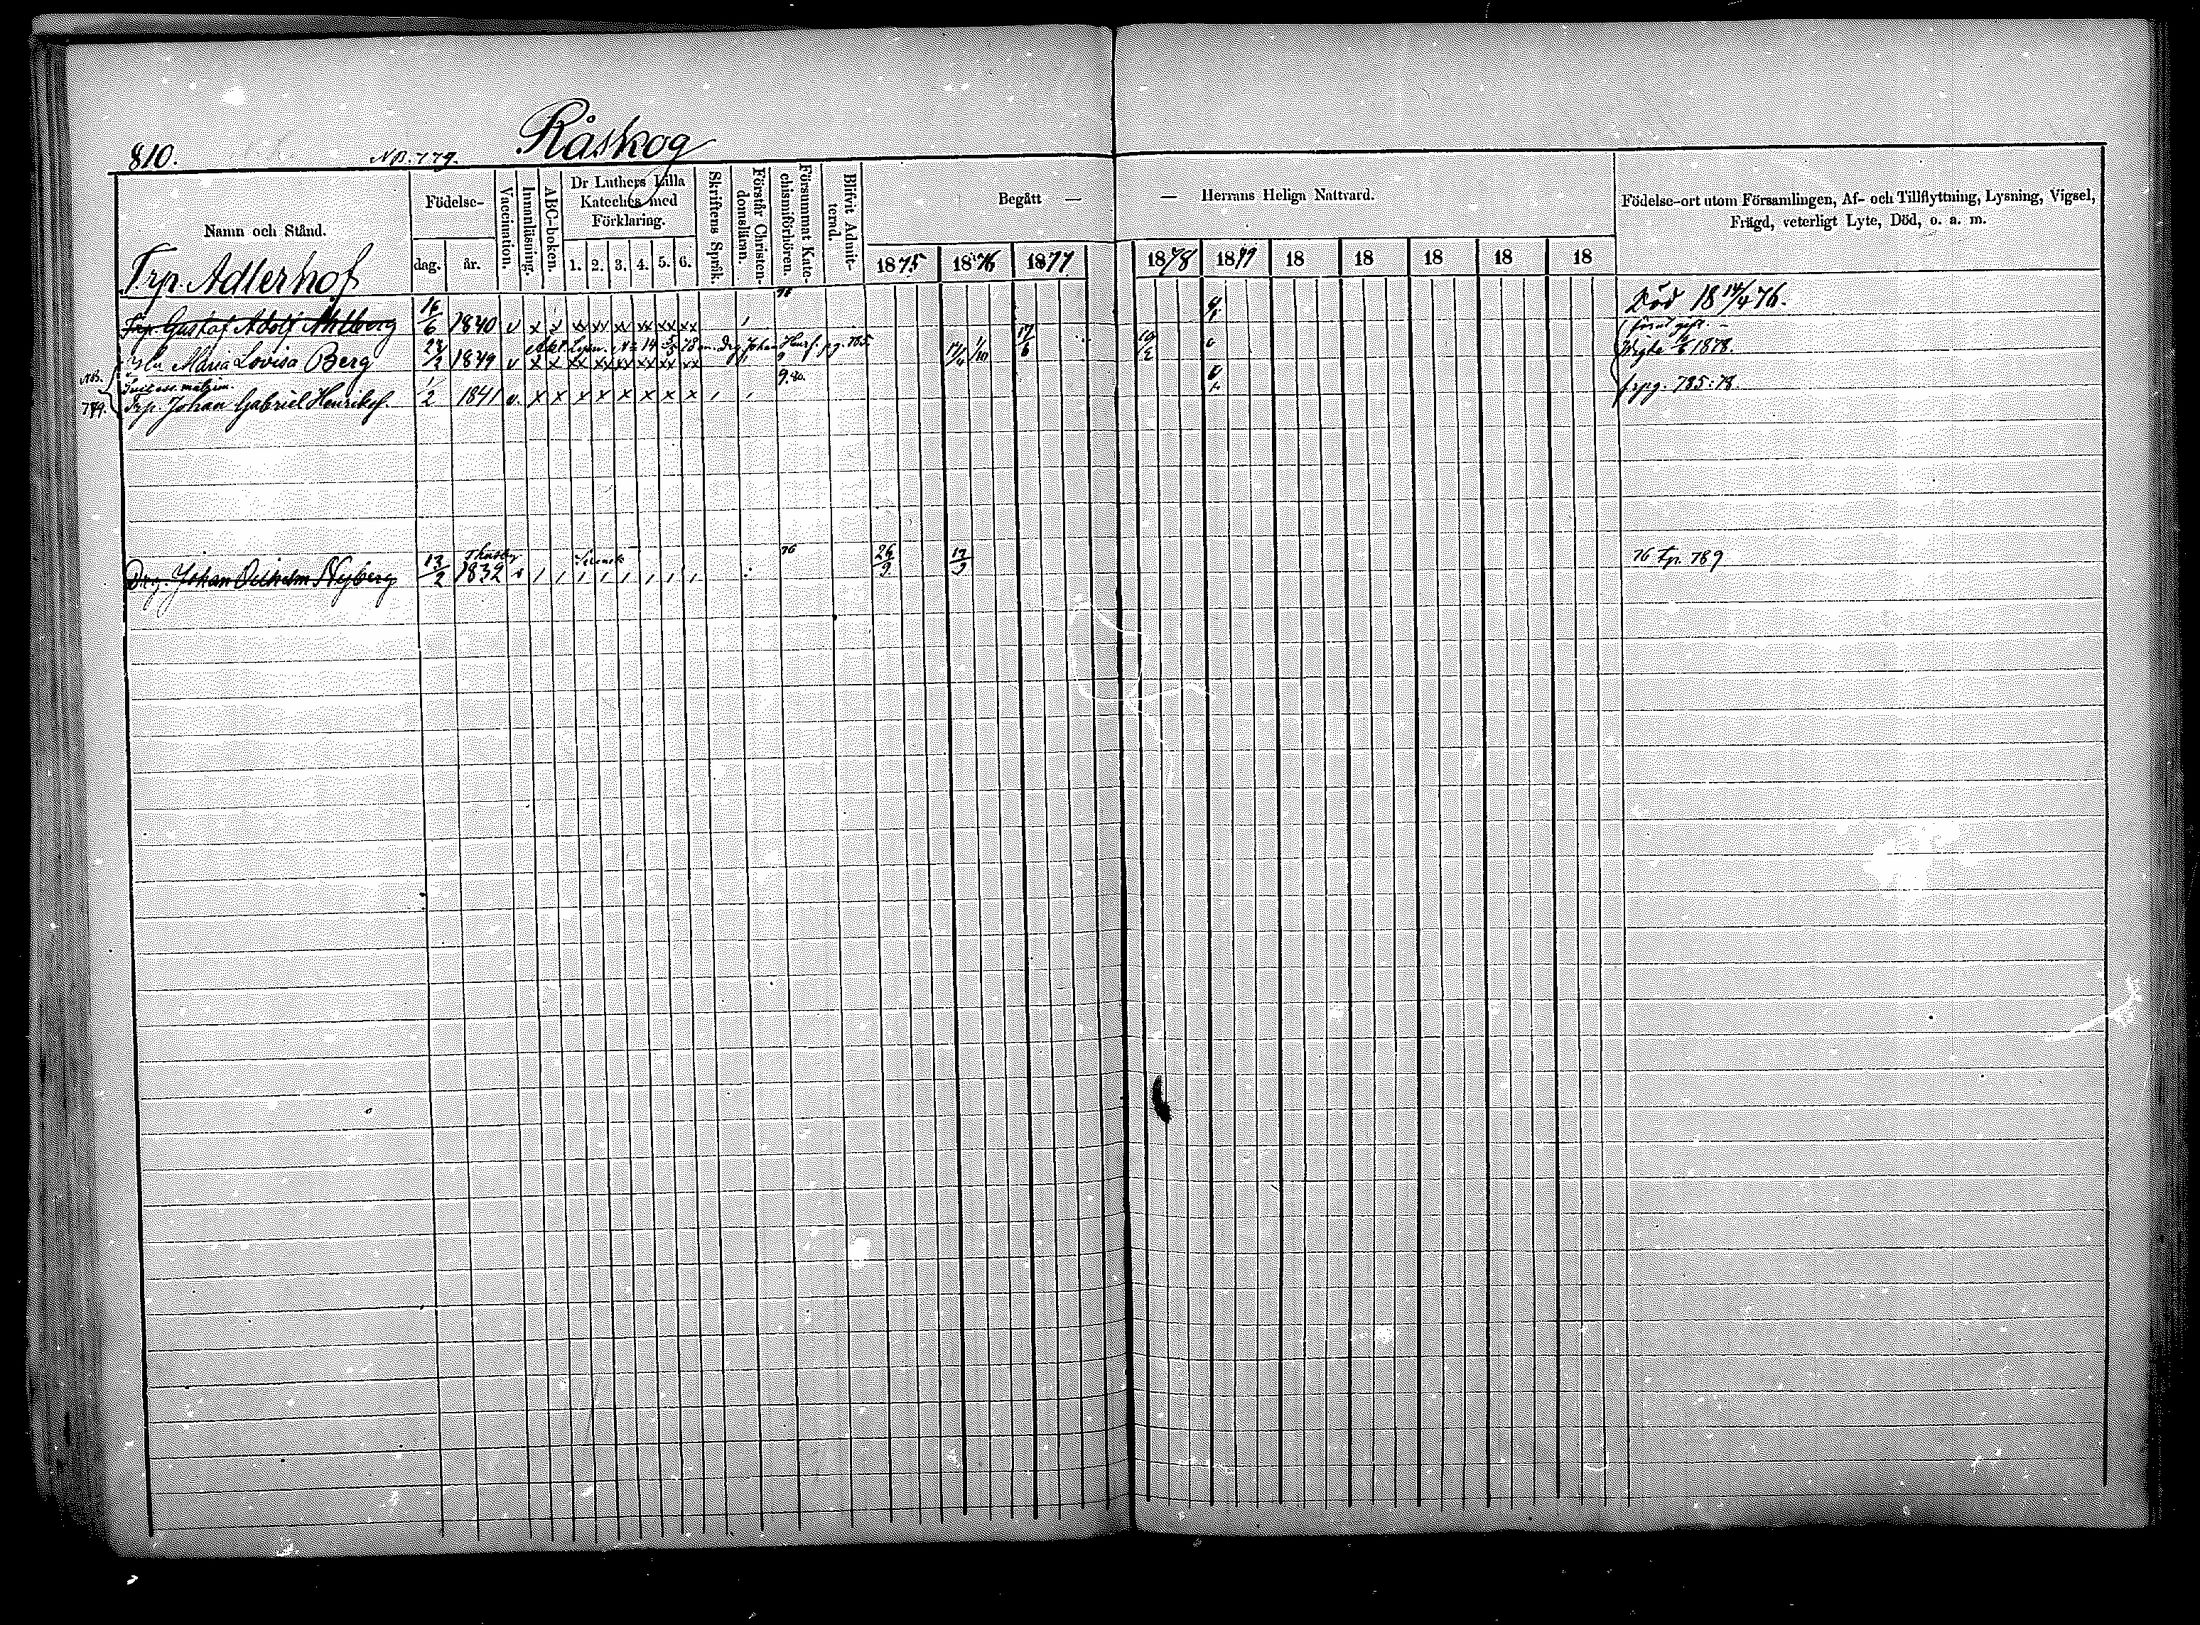 810. NB. 779. Råskog
Namn och Stånd.
Födelse-
dag. år.
Vaccination.
Innanläsning.
ABC-boken.
Dr Luthers Lilla
Kateches med
Förklaring.
1. 2. 3. 4. 5. 6.
Skriftens Språk.
Förstår Christen-
domsläran.
Försummat Kate-
chismiförhören.
Blifvit Admit-
terad.
Begått — — Herrans Heliga Nattvard.
1875 1876 1877 1878 1879 18 18 18 18 18
Födelse-ort utom Församlingen, Af- och Tillflyttning, Lysning, Vigsel,
Frägd, veterligt Lyte, Död, o. a. m.
Trp. Adlerhof
Trp. Gustaf Adolf Ahlberg 16/6 1840 v x x xx xx xx xx xx xx Död 18 14/4 76.
Maria Lovisa Berg 28/2 1849 v x x xx xx xx xx xx xx 17/6 1878.
NB. 789. Trp. Johan Gabriel Henriksf. 1/2 1841 v. x x x x x x x x 9. 80. frpg. 785: 78.
Drg. Johan Vilhelm Nyberg 13/2 1832 v 76 26/9 17/9 76 tp. 789